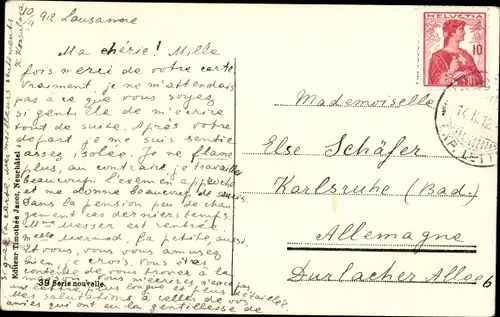 10/II 912 Lausanne
Ma chérie! Mille
fois merci de votre carte
vraiment, je ne m'attendais
pas à ce que vous soyez
si gentille de m'écrire
tout de suite. Après votre
départ je me suis sentie
assez isolée. Je ne flâne
plus, au contraire, je travaille
beaucoup. L'examen approche
et me donne beaucoup de
dans la pension peu de chan-
gement ces derniers temps.
Mme Messer est rentrée
Melle Mermod, la petite aussi.
Et vous, vous vous amusez
bien, je crois. Vous êtes
contente de vous trouver à la
vous m'écrirez
une lettre plus longue et plus détaillée.
Mes salutations à celles de vos
amies qui ont eu la gentillesse de
meilleurs sentiments
Editeur Timothée Jacot, Neuchâtel
39 Serie nouvelle.
HELVETIA
10
Mademoiselle
Else Schäfer
Karlsruhe (Bad.)
Allemagne
Durlacher Allee 6